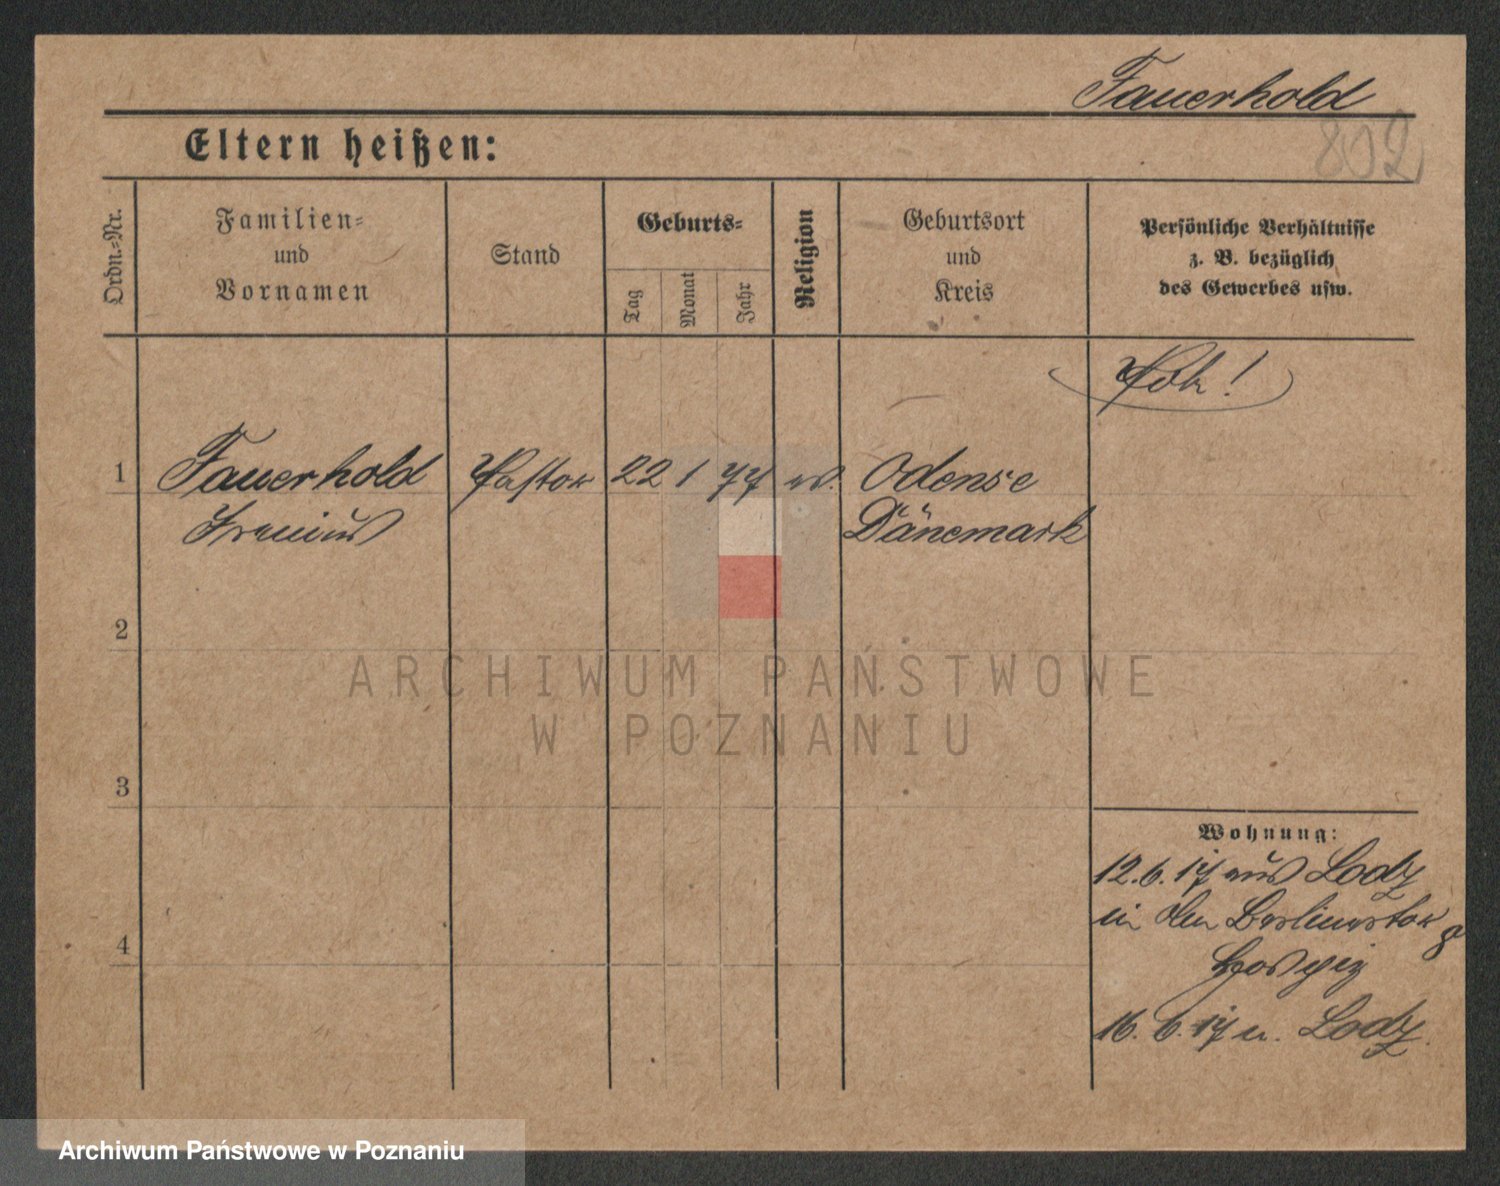 Fauerhold
802
Eltern heißen:
Ordn.-Nr.
Familien-
und
Vornamen
Stand
Geburts-
Tag
Monat
Jahr
Religion
Geburtsort
und
Kreis
Persönliche Verhältnisse
z. B. bezüglich
des Gewerbes usw.
1
Fauerhold
Pastor
22
1
77
Odense
Dänemark
2
3
4
Wohnung:
12.6.17 aus Lodz
in den Berlinerstr 8
Hospiz
16.6.17 n. Lodz.
ARCHIWUM PAŃSTWOWE
W POZNANIU
Archiwum Państwowe w Poznaniu